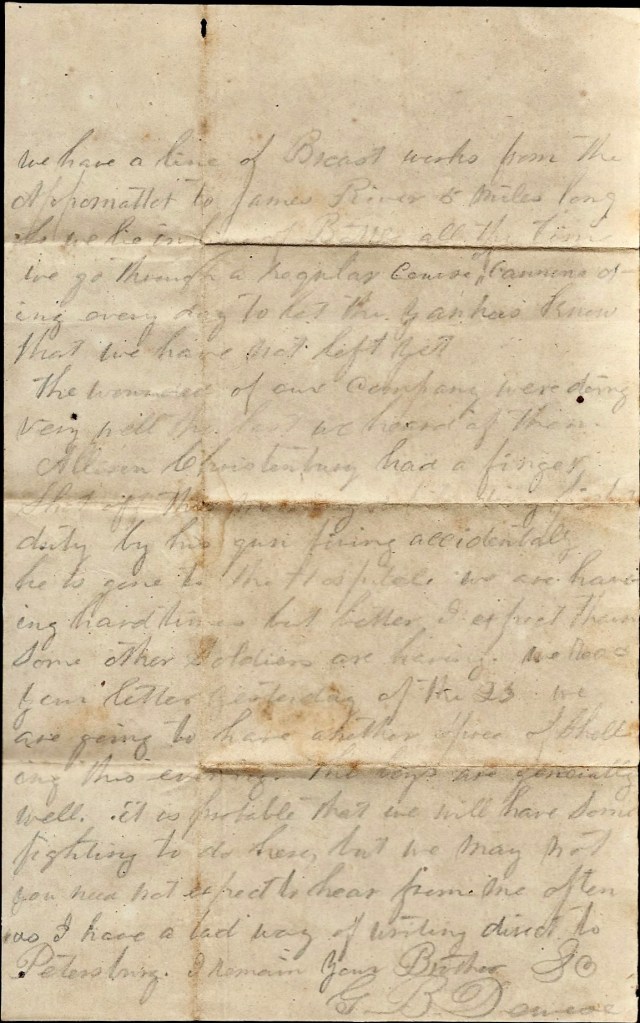 we have a line of Breast works from the
Appomattox to James River 5 miles long
we lie in line of Battle all the time
we go through a regular course of cannons
ing every day to let the Yankees know
that we have not left yet
The wounded of our Company were doing
very well the last we heard of them.
Allison Christenbury had a finger
shot off this morning
duty by his gun firing accidentally
he is gone to the Hospital. we are hav
ing hard times but better I expect than
some other Soldiers are having. we
your letter yesterday of the 23 we
are going to have another of shell
ing this evening. The boys are generally
well. it is probable that we will have some
fighting to do here, but we may not
you need not expect to hear from me often
as I have a bad way of writing direct to
Petersburg. I remain your Brother &c
G B